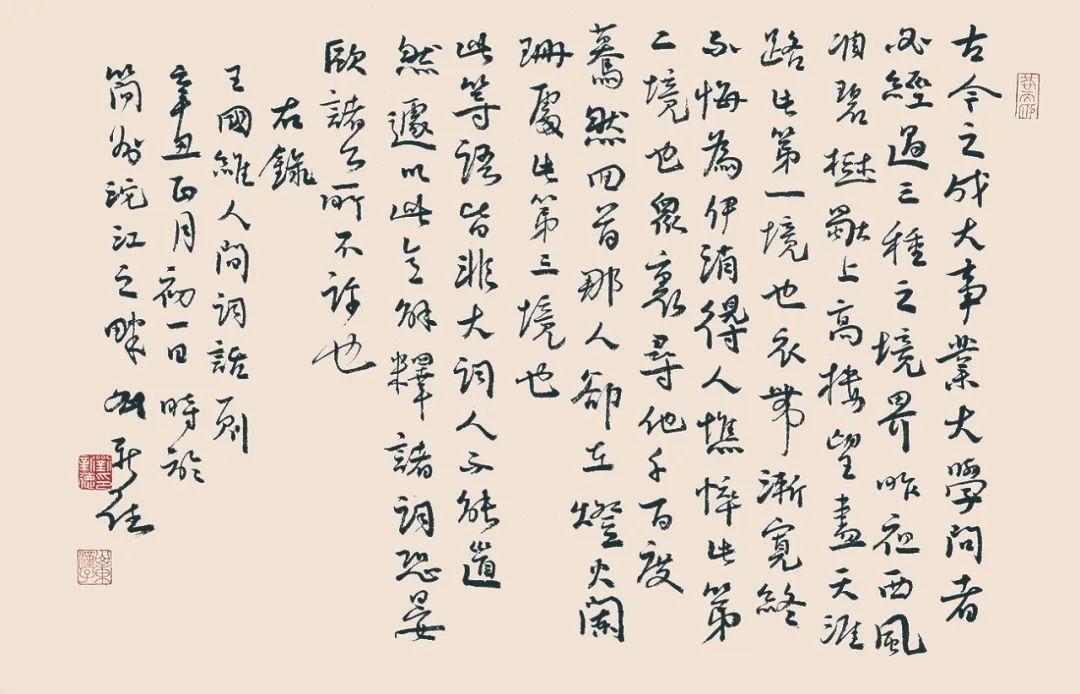 古今之成大事業大學問者
必經過三種之境界昨夜西風
凋碧樹獨上高樓望盡天涯
路此第一境也衣帶漸寬終
不悔為伊消得人憔悴此第
二境也眾裏尋他千百度
驀然回首那人卻在燈火闌
珊處此第三境也
此等語皆非大詞人不能道
然遽以此意解釋諸詞恐晏
歐諸公所不許也
右錄
王國維人間詞話則
辛丑正月初一日時於
簡州沱江之畔